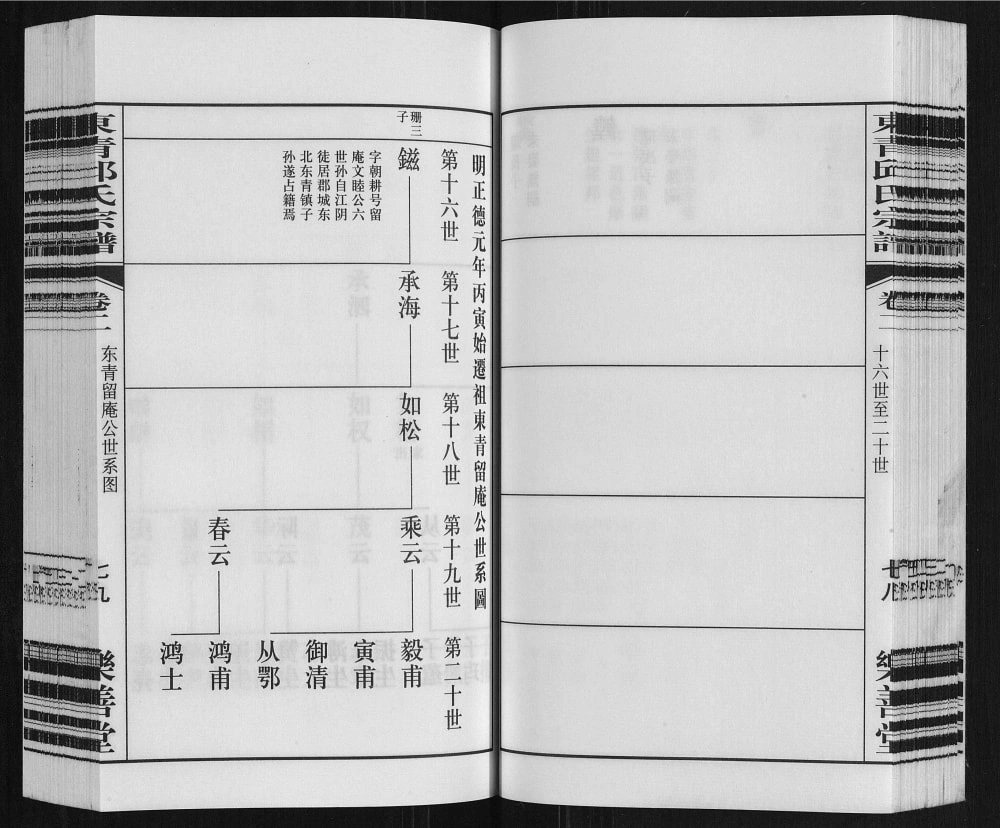 東青邱氏宗譜
卷二
十六世至二十世
七八
樂善堂
明正德元年丙寅始遷祖東青留庵公世系圖
第十六世
第十七世
第十八世
第十九世
第二十世
珊三
子
鎡
字朝耕号留
庵文睦公六
世孙自江阴
徒居郡城东
北东青镇子
孙遂占籍焉
承海
如松
乘云
春云
毅甫
寅甫
御清
从鄂
鸿甫
鸿士
東青邱氏宗譜
卷二
东青留庵公世系图
七九
樂善堂